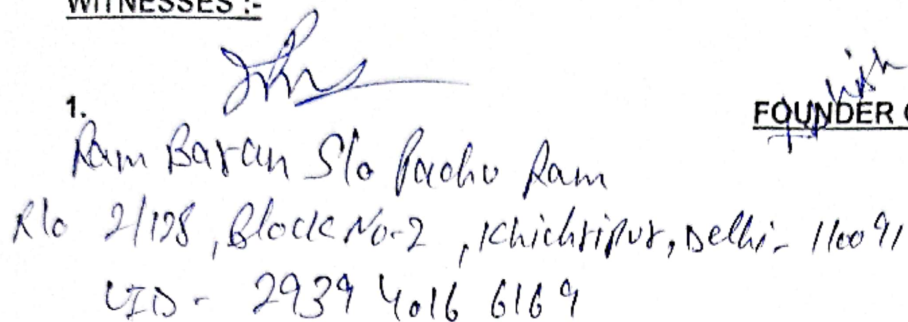 WITNESSES :-
1.
FOUNDER
Ram Baran S/o Pachu Ram
R/o 2/128, Block No-2, Khichripur, Delhi- 110091
UID - 2939 4016 6169